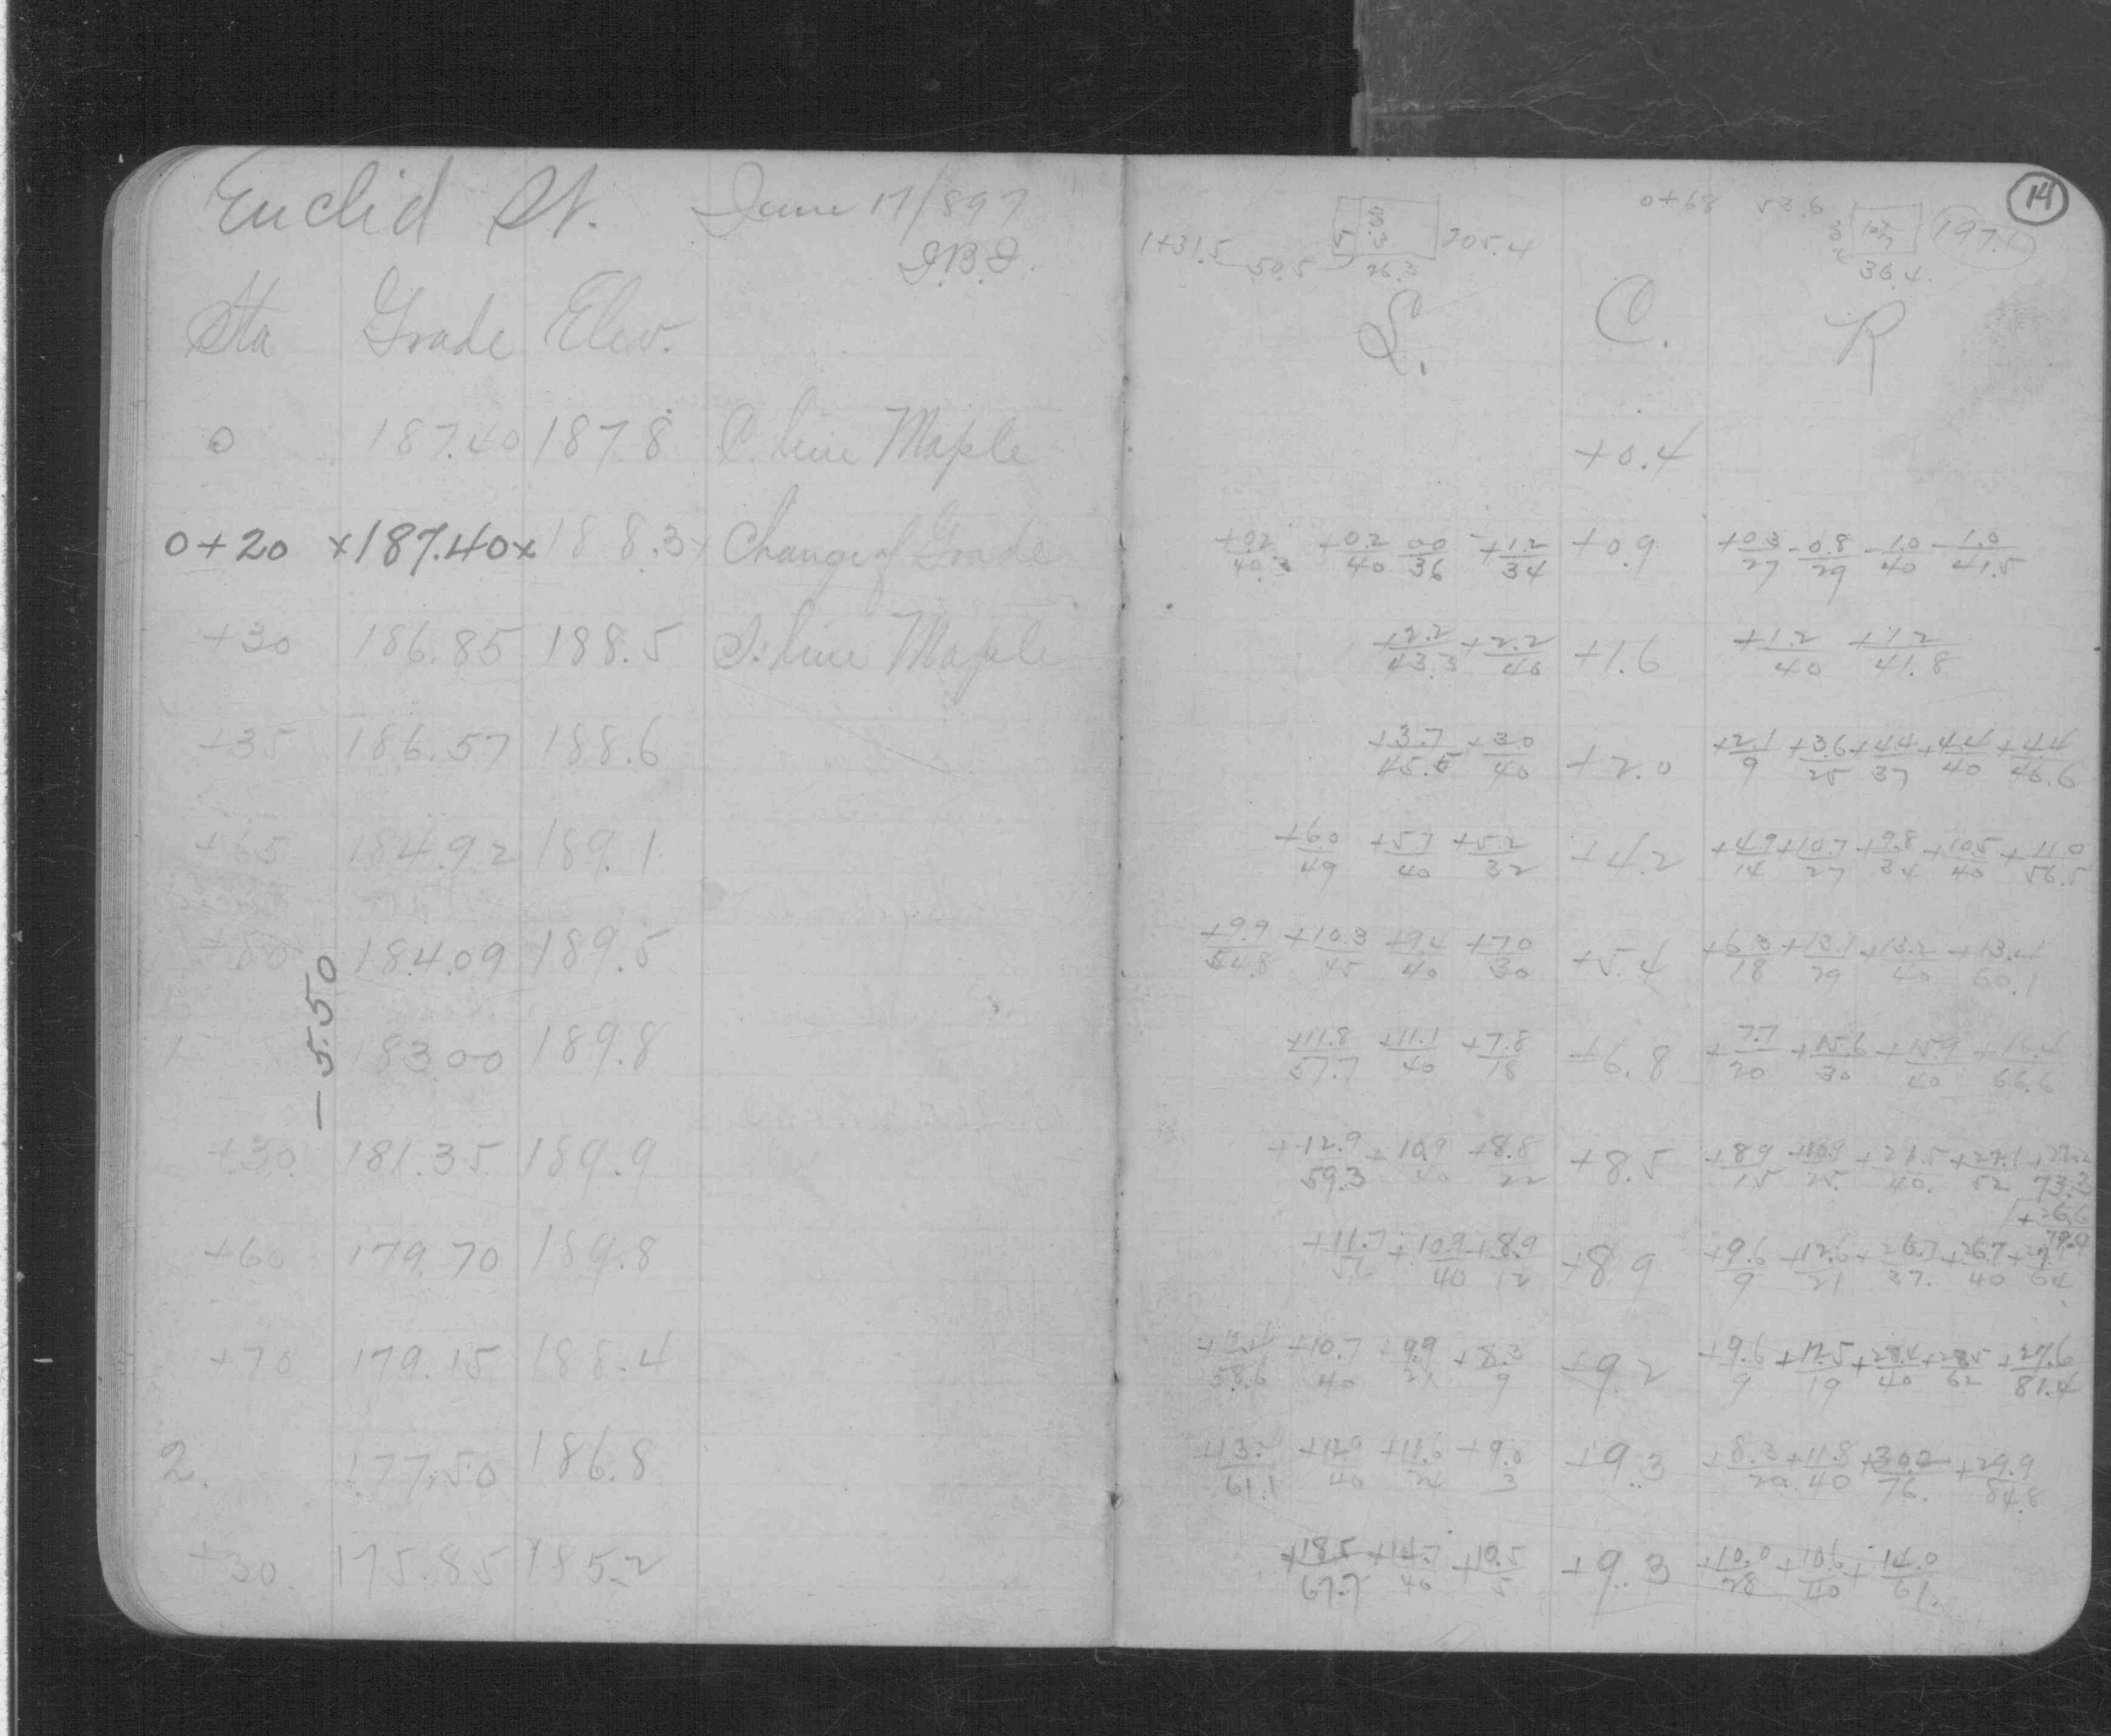 Euclid St. June 17/897
I.B.I.
Sta Grade Elev.
0 187.40 187.8 C. line Maple
0+20 x187.40x 188.3x Change of Grade
+30 186.85 188.5 S. line Maple
+35 186.57 188.6
+65 184.92 189.1
+80 184.09 189.5
1 183.00 189.8
-5.50
+30 181.35 189.9
+60 179.70 189.8
+70 179.15 188.4
2. 177.50 186.8
+30. 175.85 185.2
14
0+68 53.6 197.1
36.4
1+31.5 50.5 26.3 205.4
L. C. R
+0.4
+0.2/40.3 +0.2/40 00/36 +1.2/34 +0.9 +0.3/27 -0.8/29 -1.0/40 -1.0/41.5
+2.2/43.3 +2.2/40 +1.6 +1.2/40 +1.2/41.8
+3.7/45.5 +3.0/40 +2.0 +2.1/9 +3.6/25 +4.4/37 +4.4/40 +4.4/46.6
+6.0/49 +5.7/40 +5.2/32 +4.2 +4.9/14 +10.7/27 +9.8/34 +10.5/40 +11.0/56.5
+9.9/54.8 +10.3/45 +9.4/40 +7.0/30 +5.4 +6.3/18 +13.1/29 +13.2/40 +13.4/60.1
+11.8/57.7 +11.1/40 +7.8/18 +6.8 +7.7/20 +15.6/30 +15.9/40 +16.4/66.6
+12.9/59.3 +10.9/40 +8.8/22 +8.5 +8.9/15 +10.9/25. +21.5/40. +22.1/52 73.3
+11.7/56 +10.9/40 +8.9/12 +8.9 +9.6/9 +12.6/21 +26.7/37. +26.7/40 64 +26.6/79.9
58.6 +10.7/40 +9.9/21 +8.3/9 +9.2 +9.6/9 +12.5/19 +28.4/40 +28.5/62 +27.6/81.4
61.1 +12.9/40 +11.6/24 +9.0/3 +9.3 +8.3/20 +11.8/40 +30.0/76. +29.9/84.8
+18.5/67.7 +14.7/40 +10.5/5 +9.3 +10.0/28 +10.6/40 +14.0/61.